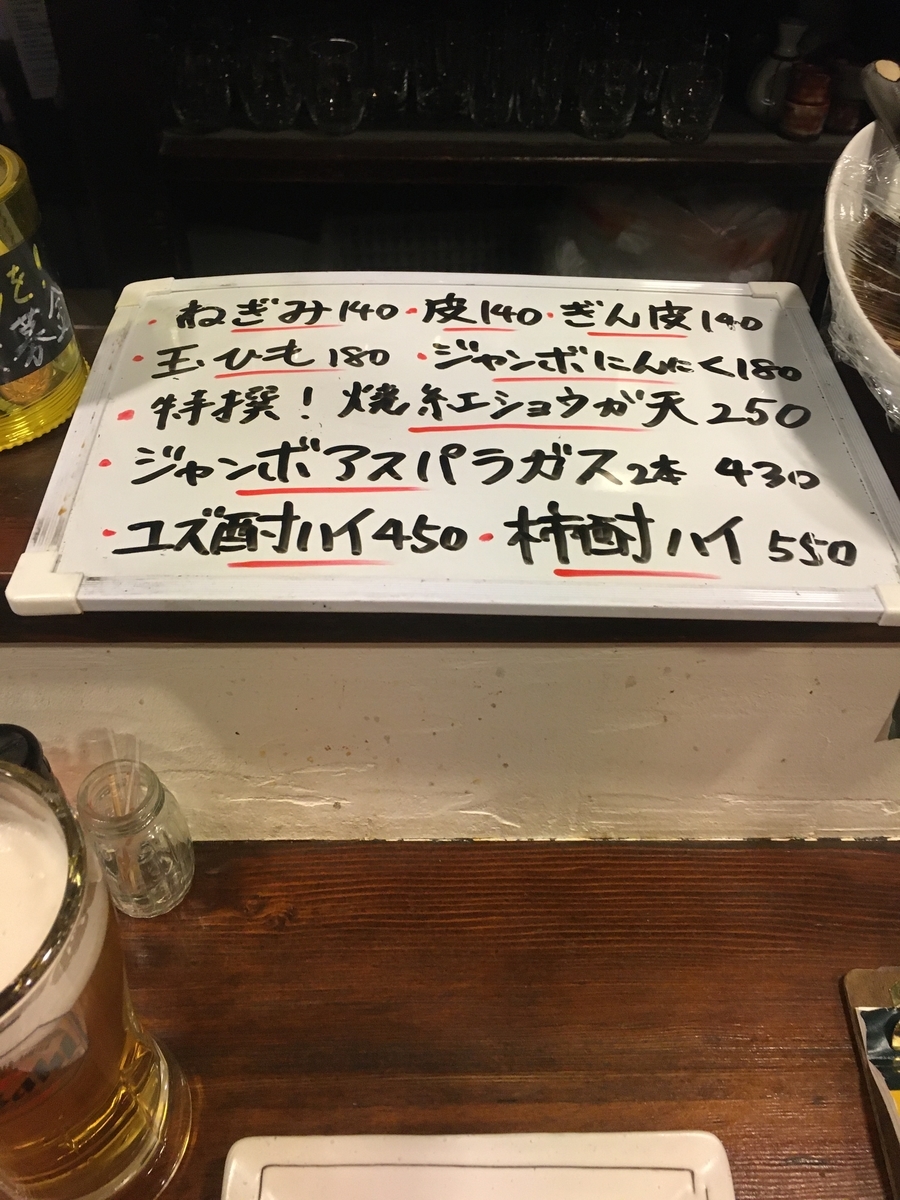 ・ねぎみ140・皮140・ぎん皮140
・玉ひも180 ・ジャンボにんにく180
・特撰！焼紅ショウガ天250
・ジャンボアスパラガス2本 430
・ユズ酎ハイ450・柿酎ハイ550